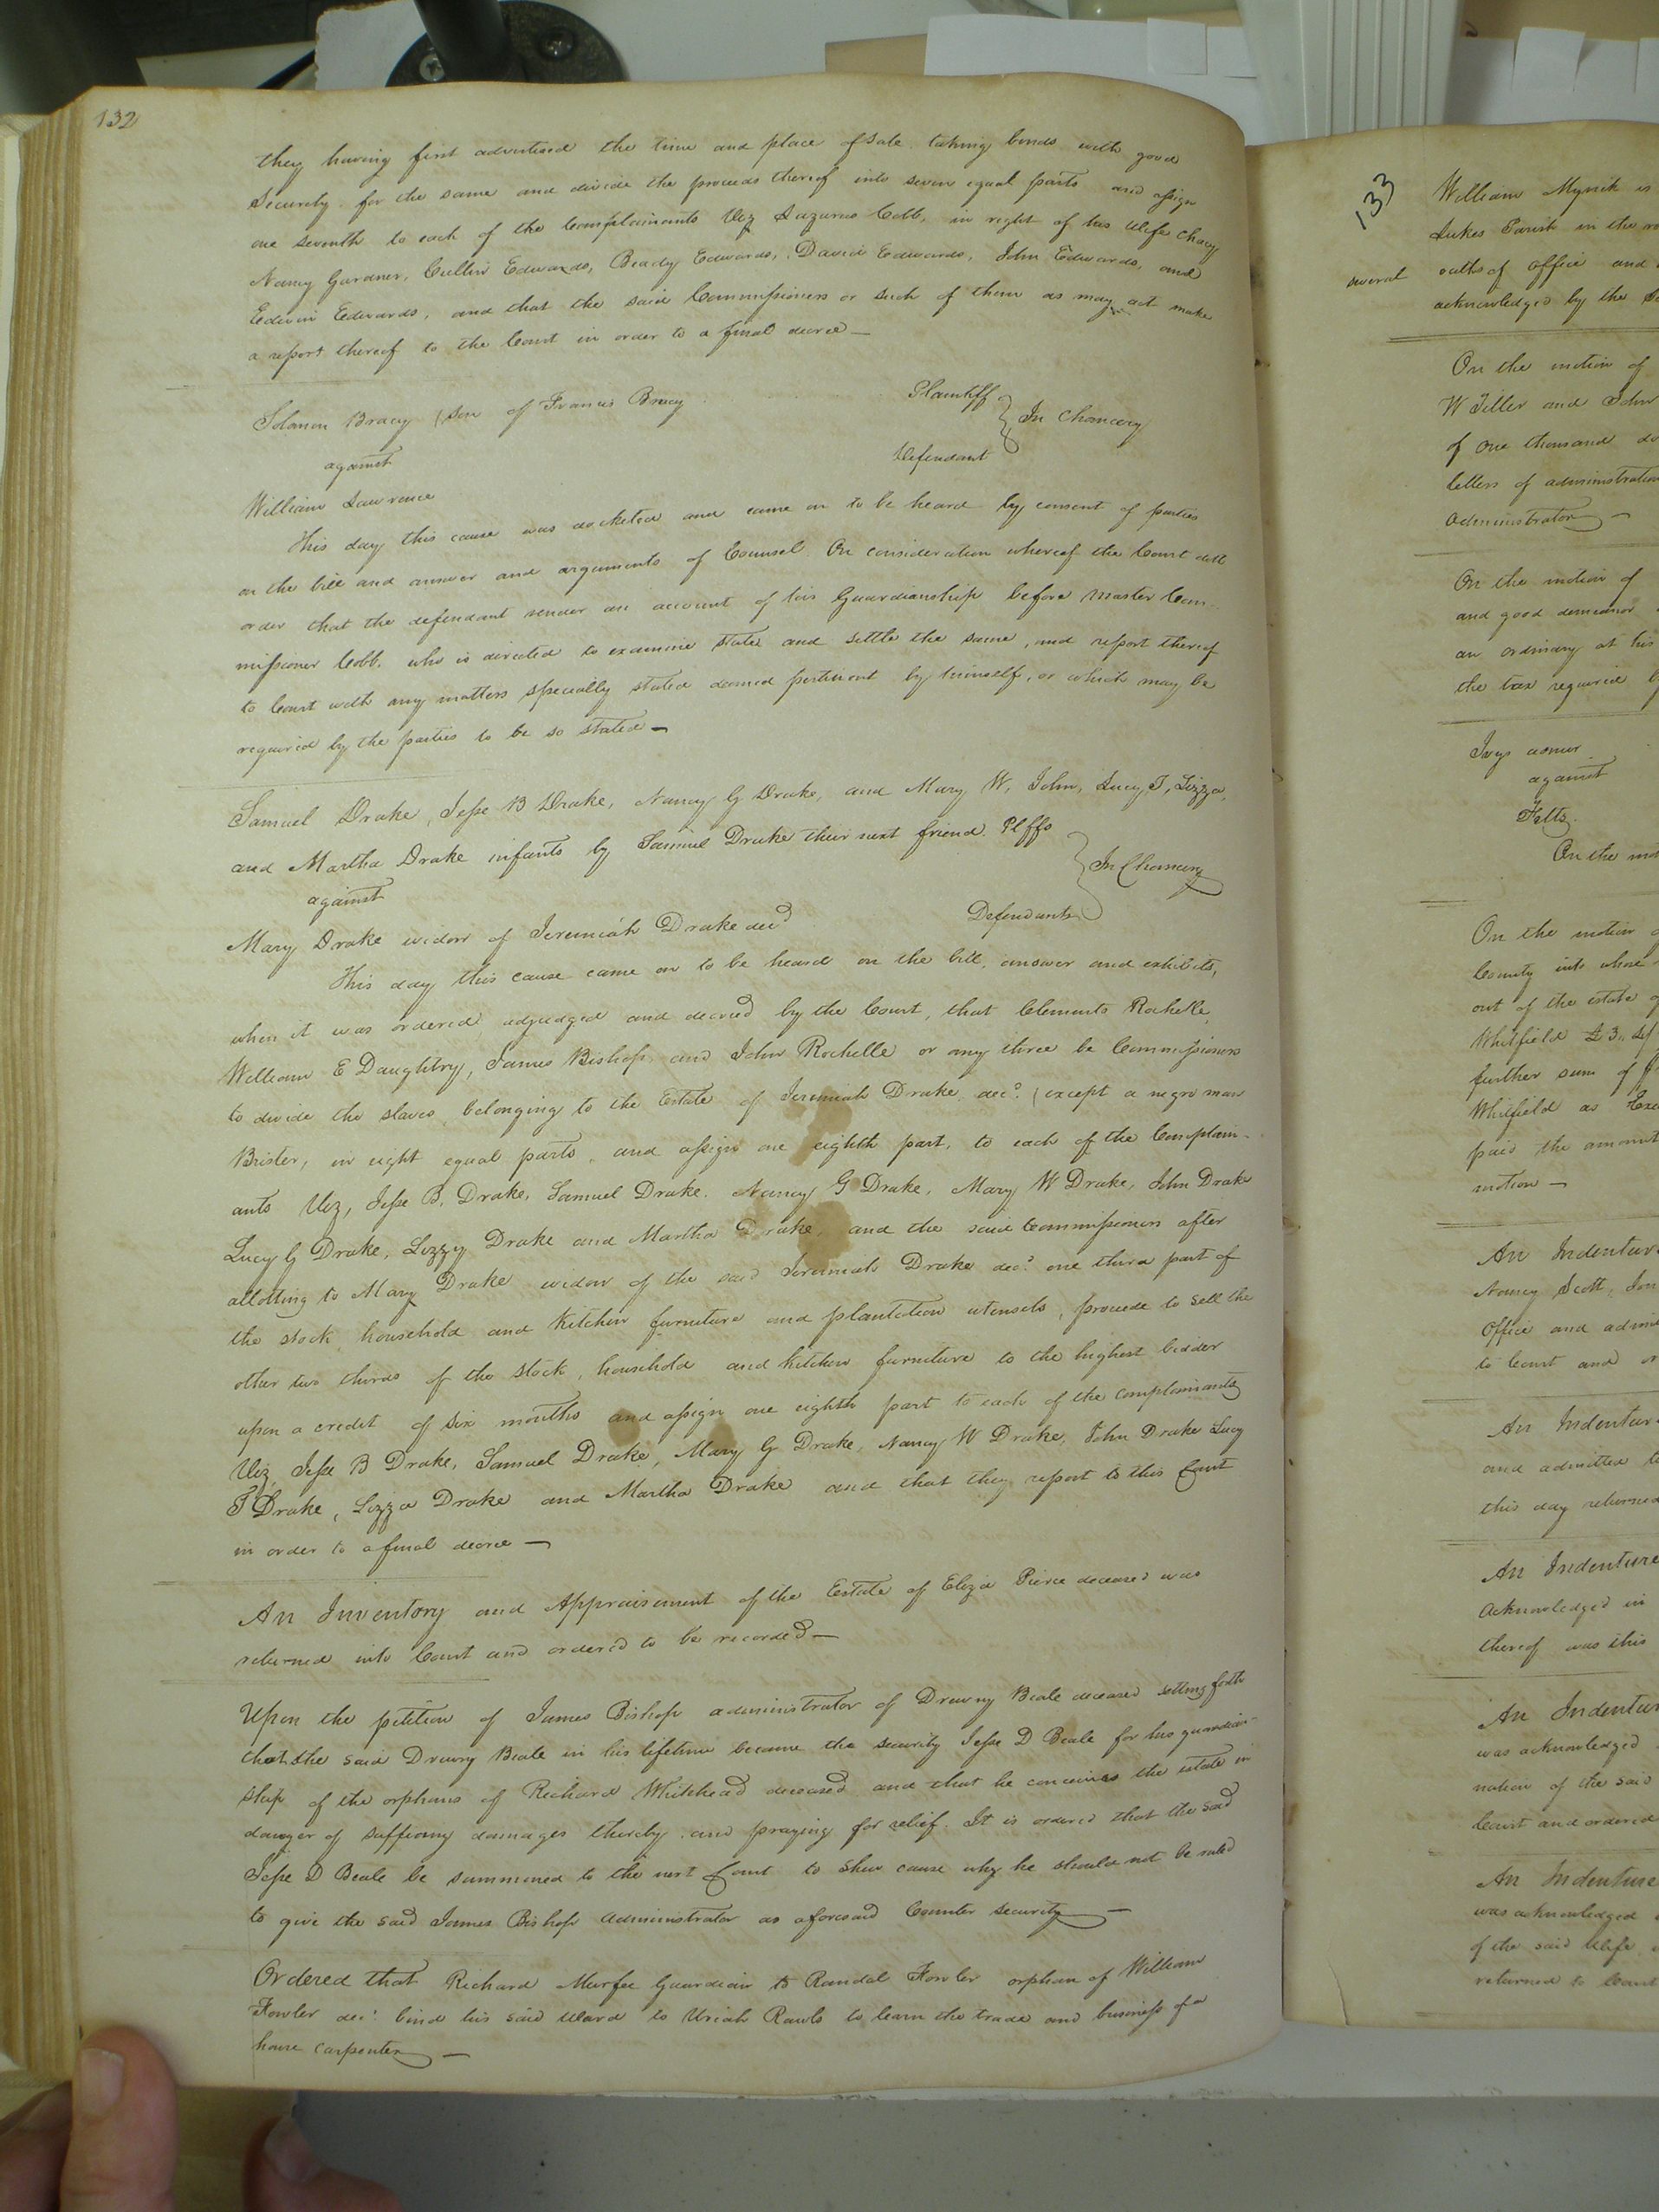 132
they having first advertised the time and place of sale taking bonds with good
Security for the same and divide the proceeds thereof into seven equal parts and assign
one seventh to each of the Complainants Viz Lazarus Cobb, in right of his Wife Chacy
Nancy Gardner, Cullin Edwards, Beady Edwards, David Edwards, John Edwards, and
Edwin Edwards, and that the said Commissioners or such of them as may act make
a report thereof to the Court in order to a final decree —
Solomon Bracy (son of Francis Bracy Plaintiff
against } In Chancery
William Lawrence Defendant
This day this cause was docketed and came on to be heard by consent of parties
on the bill and answer and arguments of Counsel On consideration whereof the Court doth
order that the defendant render an account of his Guardianship before Master Com-
missioner Cobb. who is directed to examine state and settle the same, and report thereof
to Court with any matters specially stated deemed pertinent by himself, or which may be
required by the parties to be so stated —
Samuel Drake, Jesse B Drake, Nancy G Drake, and Mary W, John, Lucy T, Lizza,
and Martha Drake infants by Samuel Drake their next friend. Plffs
against } In Chancery
Mary Drake widow of Jeremiah Drake decd Defendants
This day this cause came on to be heard on the bill, answer and exhibits,
when it was ordered adjudged and decreed by the Court, that Clements Rochelle,
William E Daughtry, James Bishop and John Rochelle or any three be Commissioners
to divide the slaves belonging to the Estate of Jeremiah Drake decd (except a negro man
Brister, in eight equal parts, and assign one eighth part, to each of the Complain-
ants Viz, Jesse B. Drake, Samuel Drake. Nancy G Drake, Mary W Drake, John Drake
Lucy G Drake, Lizzy Drake and Martha Drake, and the said Commissioners after
allotting to Mary Drake widow of the said Jeremiah Drake decd one third part of
the stock household and kitchen furniture and plantation utensels, proceede to sell the
other two thirds of the stock, household and kitchen furniture to the highest bidder
upon a credit of six months and assign one eighth part to each of the complainants
Viz Jesse B Drake, Samuel Drake, Mary G Drake, Nancy W Drake, John Drake Lucy
T Drake, Lizza Drake and Martha Drake and that they report to this Court
in order to a final decree —
An Inventory and Appraisement of the Estate of Eliza Pierce deceased was
returned into Court and ordered to be recorded —
Upon the petition of James Bishop administrator of Drewry Beale deceased setting forth
that the said Drewry Beale in his lifetime became the security Jesse D Beale for his guardian-
ship of the orphans of Richard Whitehead deceased and that he conceives the estate in
danger of suffering damages thereby and praying for relief. It is ordered that the said
Jesse D Beale be summoned to the next Court to shew cause why he should not be ruled
to give the said James Bishop administrator as aforesaid Counter security —
Ordered that Richard Murfee Guardian to Randal Fowler orphan of William
Fowler decd bind his said Ward to Uriah Rawls to learn the trade and business of a
house carpenter —
133
William Myrick is
Lukes Parish in the
several oaths of office and
acknowledged by the
On the motion of
W Tiller and John
of one thousand
letters of administration
administrator —
On the motion of
and good demeanor
an ordinary at his
the tax required
Ivys admr
against
Felts.
On the
On the motion
County into whose
out of the estate
Whitfield £3. 4/
further sum of
Whitfield as
paid the amount
motion —
An Indenture
Nancy Scott,
Office and
to Court and
An Indenture
and admitted
this day returned
An Indenture
acknowledged in
thereof was this
An Indenture
was acknowledged
nation of the said
Court and ordered
An Indenture
was acknowledged
of the said Wife
returned to Court